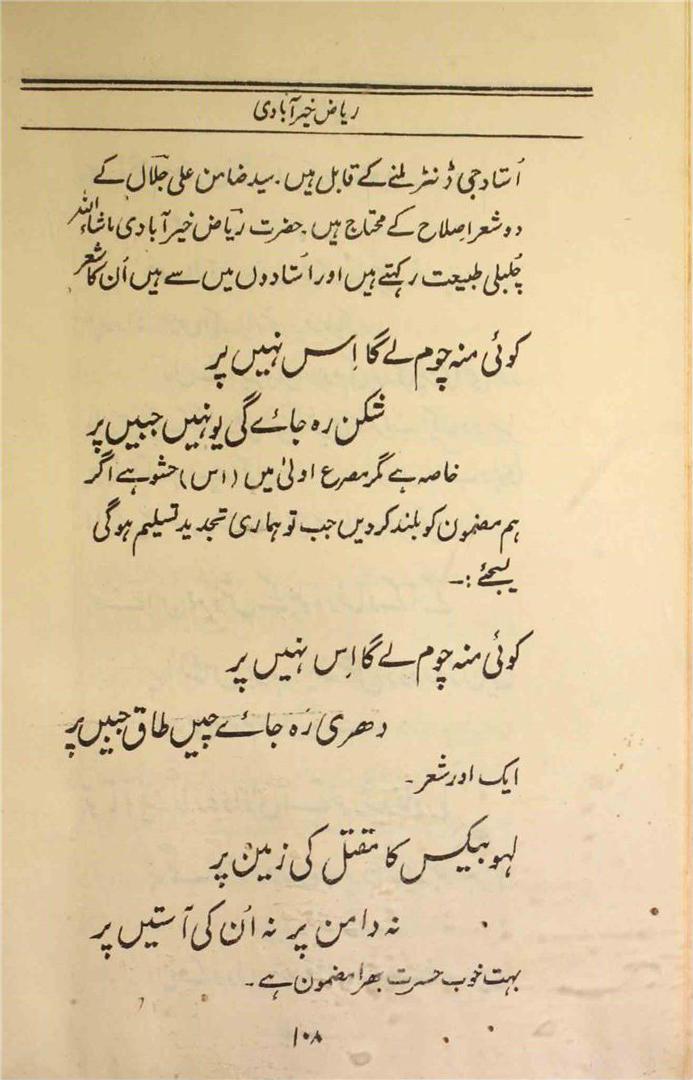 ریاض خیرآبادی
اُستاد جی ڈنٹر ملنے کے قابل ہیں۔ سید ضامن علی جلالؔ کے
دو شعر اصلاح کے محتاج ہیں۔ حضرت ریاضؔ خیرآبادی ماشاءاللہ
چُلبلی طبیعت رکھتے ہیں اور اُستادوں میں سے ہیں اُن کا شعر
کوئی منہ چوم لے گا اِس نہیں پر
شکن رہ جائے گی یونہیں جبیں پر
خاصہ ہے مگر مصرع اولیٰ میں (اس) حشو ہے اگر
ہم مضمون کو بلند کردیں جب تو ہماری تجدید تسلیم ہوگی
لیجئے :۔
کوئی منہ چوم لے گا اِس نہیں پر
دھری رَہ جائے چیں طاق جبیں پر
ایک اور شعر۔
لہو بیکس کا مقتل کی زمین پر
نہ دامن پر نہ اُن کی آستیں پر
بہت خوب حسرت بھرا مضمون ہے۔
۱۰۸